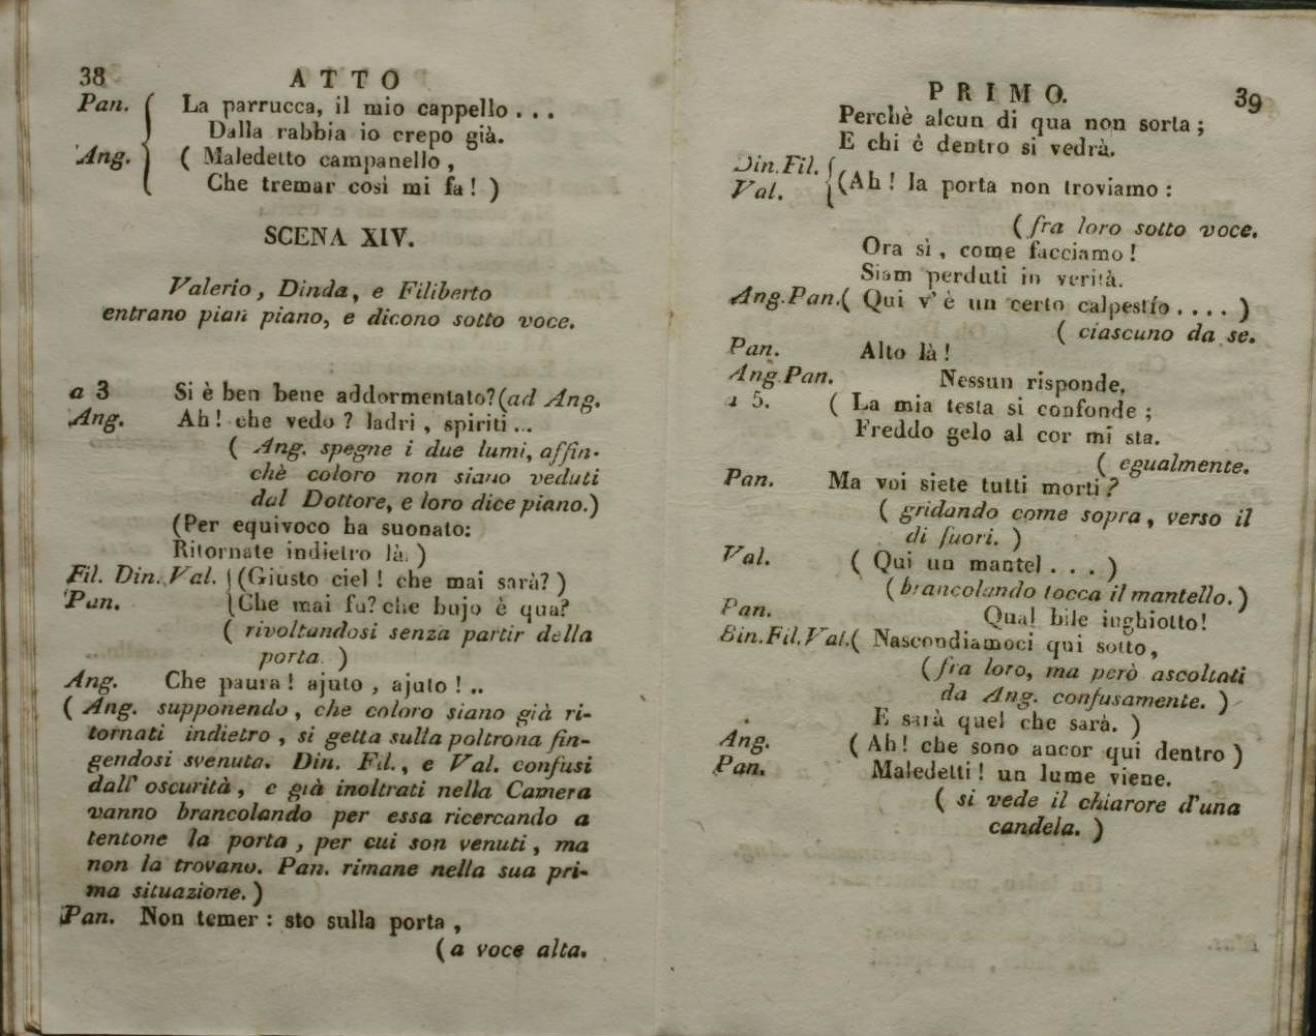 38 ATTO
Pan. La parrucca, il mio cappello . . .
Dalla rabbia io crepo già.
Ang. ( Maledetto campanello ,
Che tremar così mi fa ! )
SCENA XIV.
Valerio, Dinda, e Filiberto
entrano pian piano, e dicono sotto voce.
a 3 Si è ben bene addormentato? (ad Ang.
Ang. Ah! che vedo ? ladri , spiriti ...
( Ang. spegne i due lumi, affin-
chè coloro non siano veduti
dal Dottore, e loro dice piano.)
(Per equivoco ha suonato:
Ritornate indietro là. )
Fil. Din. Val. (Giusto ciel ! che mai sarà? )
Pan. Che mai fu? che bujo è qua?
( rivoltandosi senza partir della
porta. )
Ang. Che paura! ajuto , ajuto ! ..
( Ang. supponendo, che coloro siano già ri-
tornati indietro, si getta sulla poltrona fin-
gendosi svenuta. Din. Fil., e Val. confusi
dall' oscurità, e già inoltrati nella Camera
vanno brancolando per essa ricercando a
tentone la porta , per cui son venuti , ma
non la trovano. Pan. rimane nella sua pri-
ma situazione. )
Pan. Non temer : sto sulla porta ,
( a voce alta.
PRIMO. 39
Perchè alcun di qua non sorta ;
E chi è dentro si vedrà.
Din. Fil.
Val. (Ah ! la porta non troviamo :
( fra loro sotto voce.
Ora sì , come facciamo !
Siam perduti in verità.
Ang. Pan. ( Qui v' è un certo calpestío . . . . )
( ciascuno da se.
Pan. Alto là !
Ang. Pan. Nessun risponde.
a 5. ( La mia testa si confonde ;
Freddo gelo al cor mi sta.
( egualmente.
Pan. Ma voi siete tutti morti ?
( gridando come sopra, verso il
di fuori. )
Val. ( Qui un mantel . . . )
( brancolando tocca il mantello. )
Pan. Qual bile inghiotto!
Bin. Fil. Val. ( Nascondiamoci qui sotto,
( fra loro, ma però ascoltati
da Ang. confusamente. )
E sarà quel che sarà. )
Ang. ( Ah! che sono ancor qui dentro )
Pan. Maledetti ! un lume viene.
( si vede il chiarore d'una
candela. )